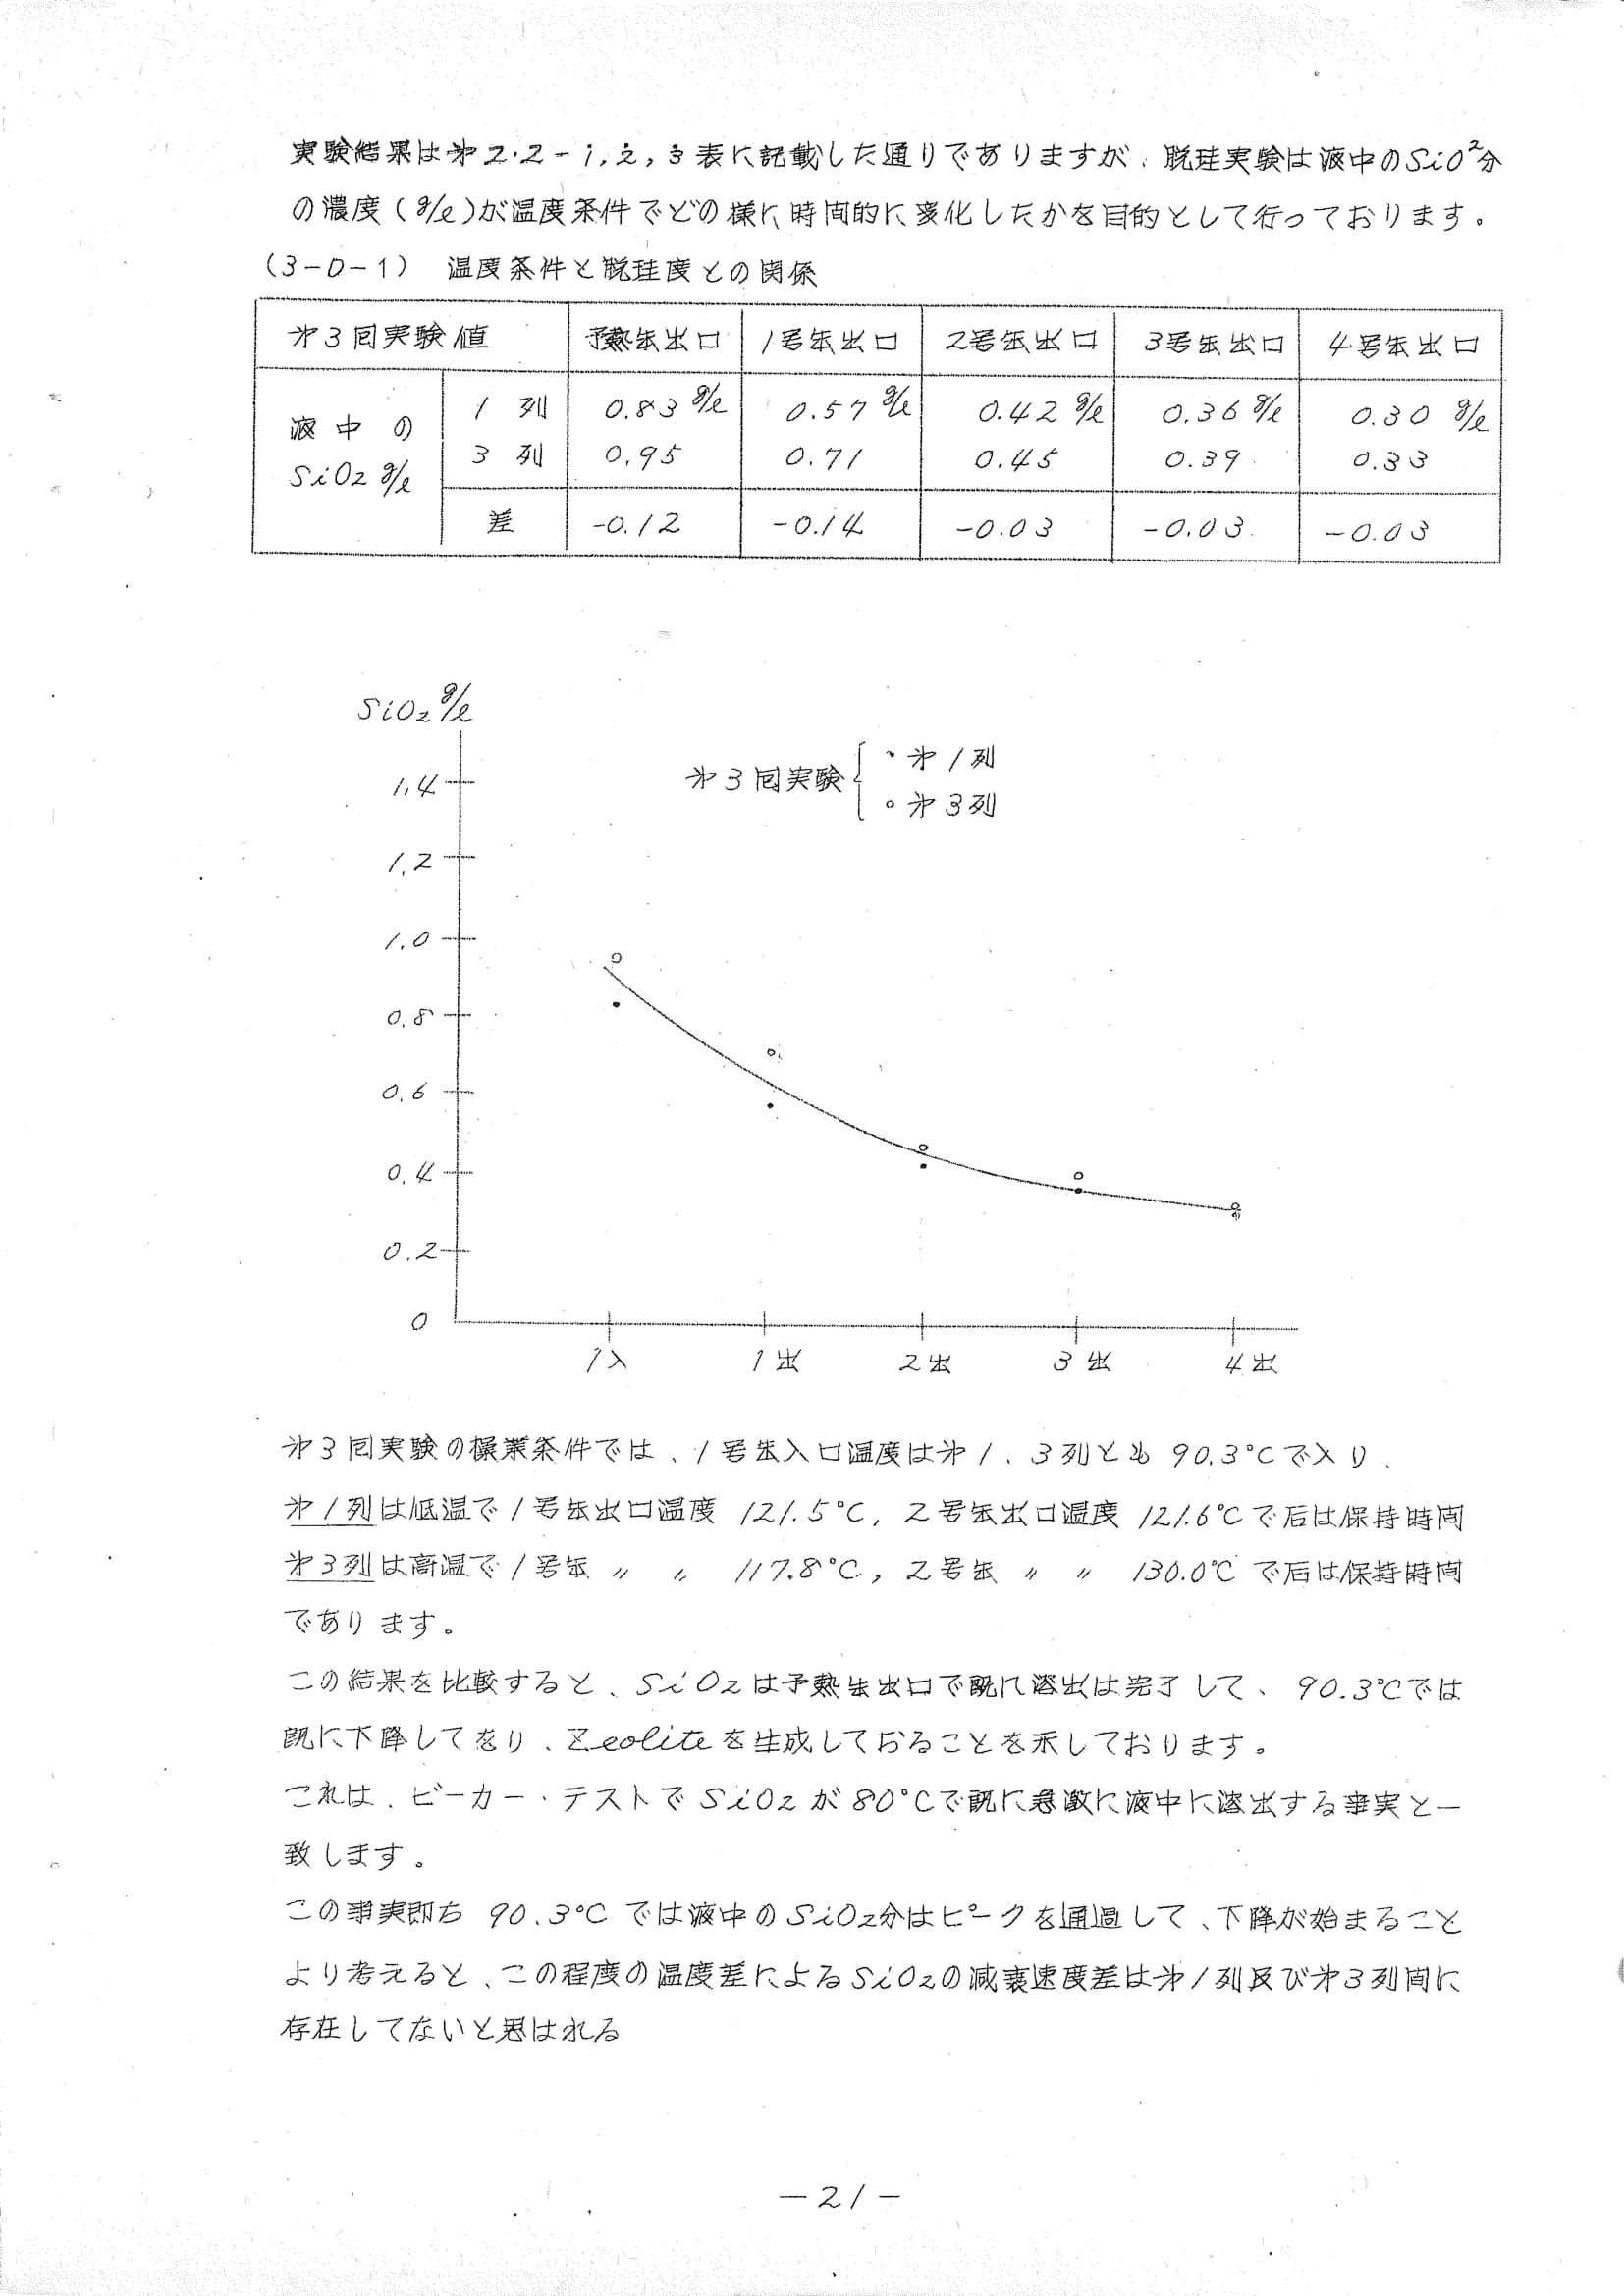 実験結果は第2.2-1,2,3表に記載した通りでありますが、脱珪実験は液中のSiO²分
の濃度(g/l)が温度条件でどの様に時間的に変化したかを目的として行っております。
(3-D-1) 温度条件と脱珪度との関係
第3回実験値 予熱缶出口 1号缶出口 2号缶出口 3号缶出口 4号缶出口
液中の SiO2 g/l
1列 0.83 g/l 0.57 g/l 0.42 g/l 0.36 g/l 0.30 g/l
3列 0.95 0.71 0.45 0.39 0.33
差 -0.12 -0.14 -0.03 -0.03 -0.03
SiO2 g/l
第3回実験 { ・第1列
。第3列
1.4
1.2
1.0
0.8
0.6
0.4
0.2
0
1入 1出 2出 3出 4出
第3回実験の操業条件では、1号缶入口温度は第1、3列とも 90.3°Cで入り、
第1列は低温で1号缶出口温度 121.5°C, 2号缶出口温度 121.6°Cで后は保持時間
第3列は高温で1号缶 〃 〃 117.8°C, 2号缶 〃 〃 130.0°C で后は保持時間
であります。
この結果を比較すると、SiO2は予熱缶出口で既に溶出は完了して、90.3°Cでは
既に下降してをり、Zeoliteを生成しておることを示しております。
これは、ビーカー・テストでSiO2が80°Cで既に急激に液中に溶出する事実と一
致します。
この事実即ち 90.3°C では液中のSiO2分はピークを通過して、下降が始まること
より考えると、この程度の温度差によるSiO2の減衰速度差は第1列及び第3列間に
存在してないと思はれる
-21-